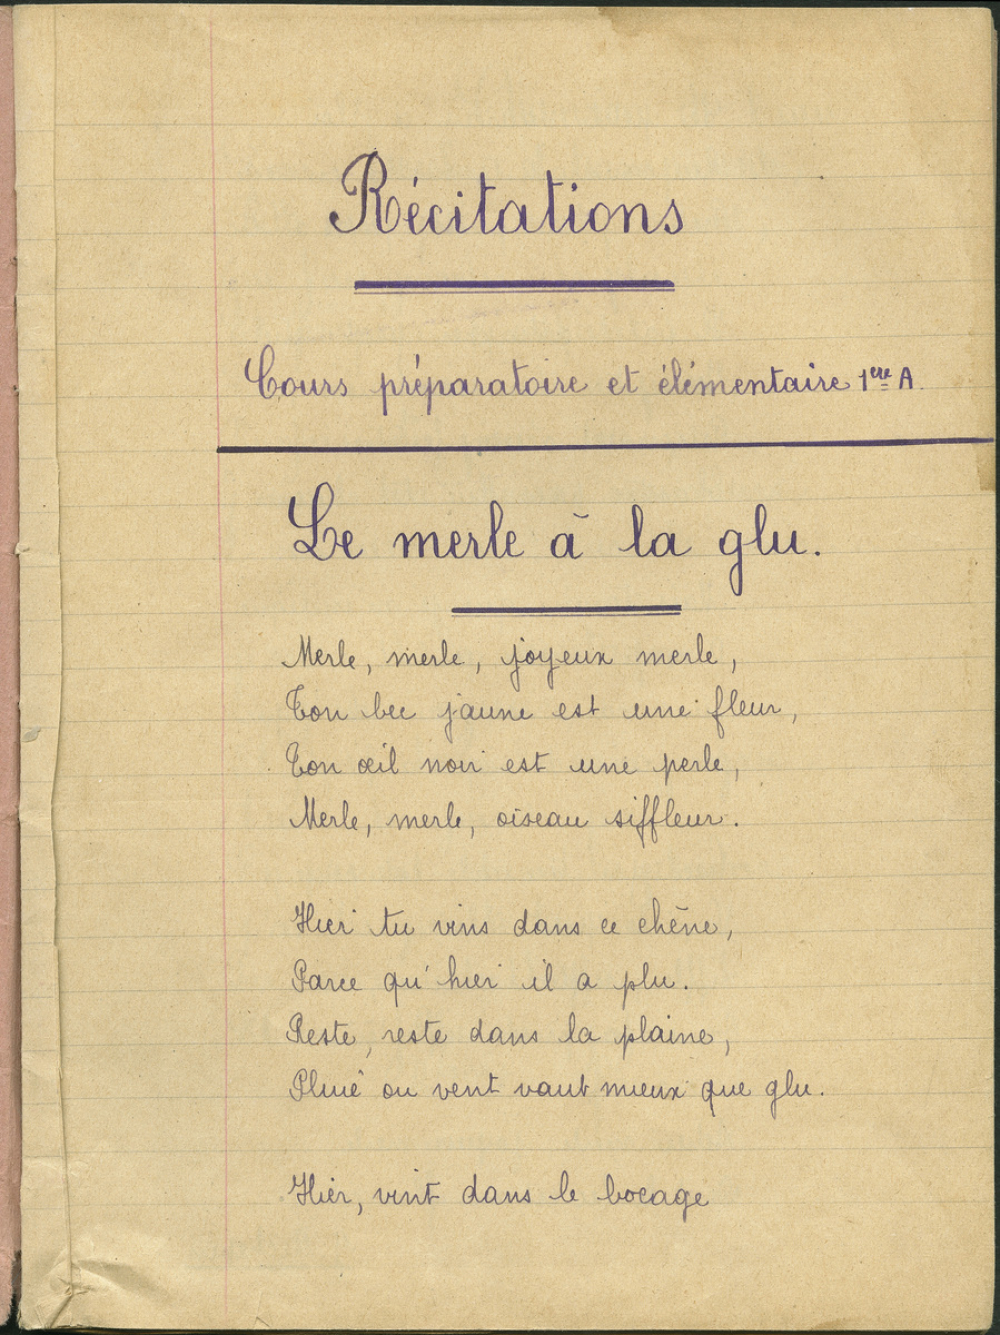 Récitations
Cours préparatoire et élémentaire 1ère A.
Le merle à la glu.
Merle, merle, joyeux merle,
Ton bec jaune est une fleur,
Ton œil noir est une perle,
Merle, merle, oiseau siffleur.
Hier tu vins dans ce chêne,
Parce qu'hier il a plu.
Reste, reste dans la plaine,
Pluie ou vent vaut mieux que glu.
Hier, vint dans le bocage